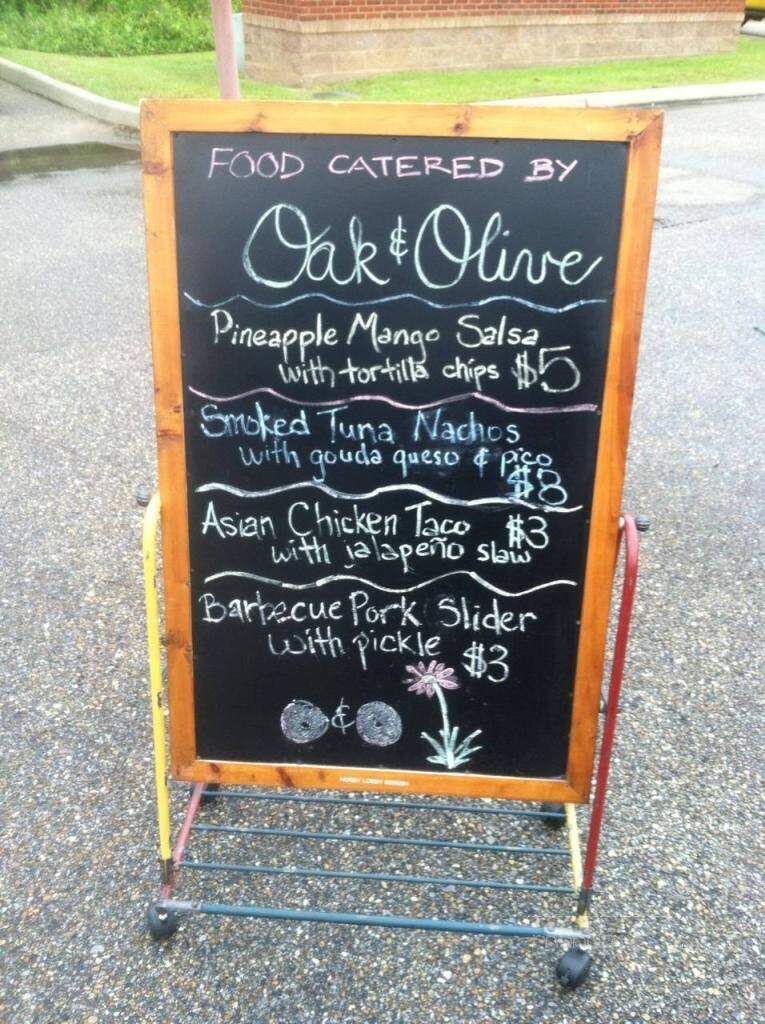 FOOD CATERED BY
Oak & Olive
Pineapple Mango Salsa
with tortilla chips $5
Smoked Tuna Nachos
with gouda queso & pico
$8
Asian Chicken Taco $3
with jalapeño slaw
Barbecue Pork Slider
with pickle $3
&